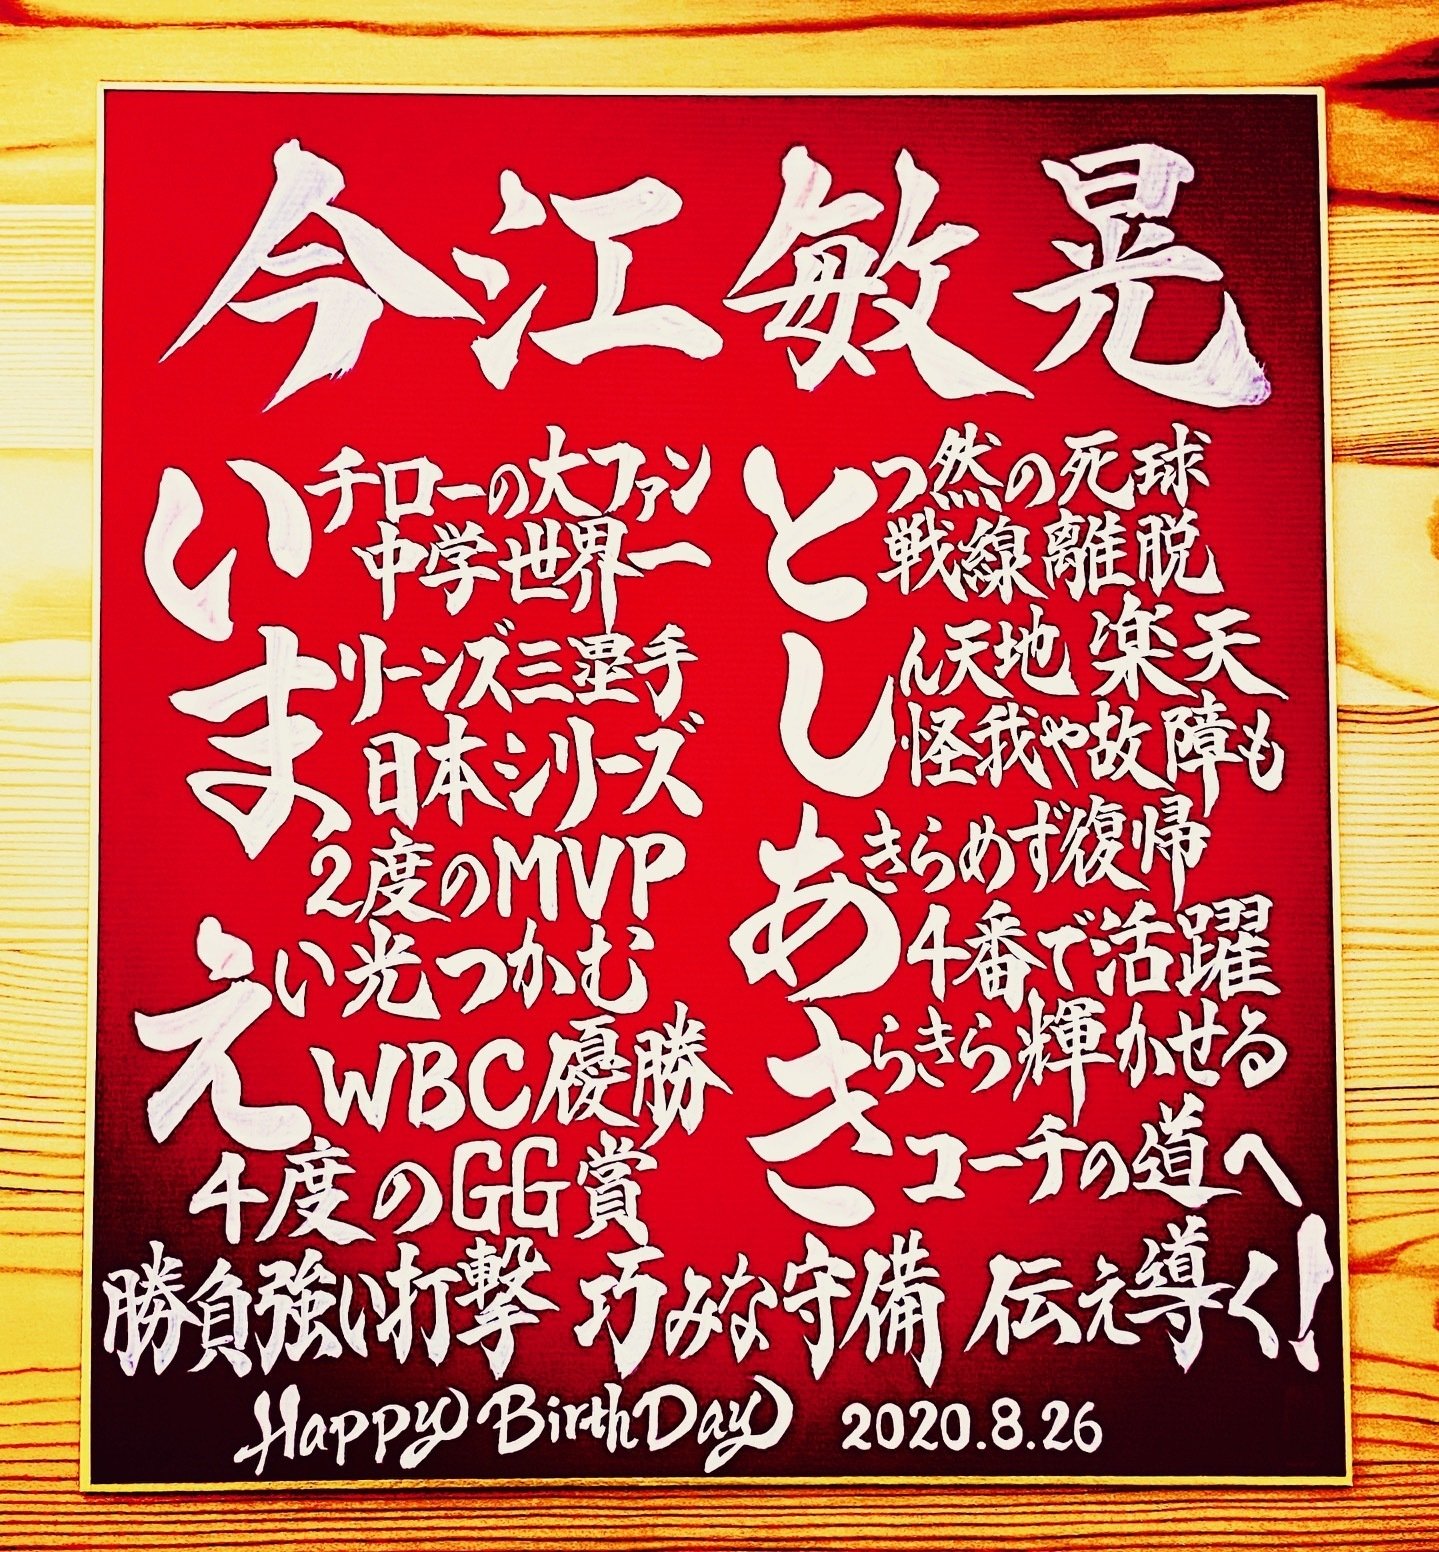 今江敏晃
いチローの大ファン
中学世界一
まリーンズ三塁手
日本シリーズ
2度のMVP
えい光つかむ
WBC優勝
4度のGG賞
とつ然の死球
戦線離脱
しん天地 楽天
怪我や故障も
あきらめず復帰
4番で活躍
きらきら輝かせる
コーチの道へ
勝負強い打撃 巧みな守備 伝え導く!
Happy BirthDay 2020.8.26